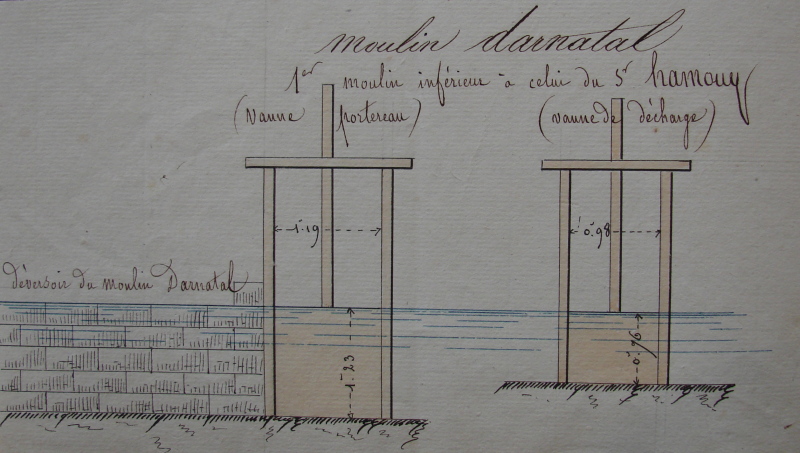 moulin darnatal
1er moulin inférieur à celui du Sr hamouy
(vanne portereau)
(vanne de décharge)
1m19
0m98
déversoir du moulin Darnatal
1m23
0m96